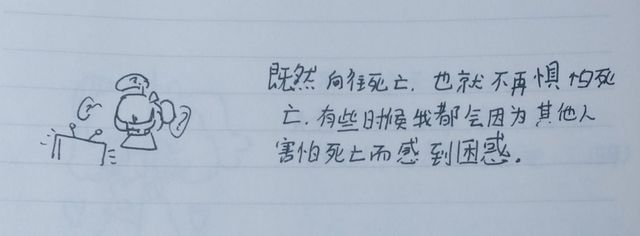 既然向往死亡，也就不再惧怕死
亡，有些时候我都会因为其他人
害怕死亡而感到困惑。